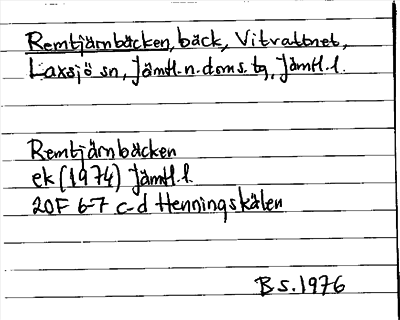 Remtjärnbäcken, bäck, Vitvattnet,
Laxsjö sn, Jämtl.n.doms.tg, Jämtl.l.
Remtjärnbäcken
ek (1974) Jämtl.l.
20F 6-7 c-d Henningskälen
B S. 1976